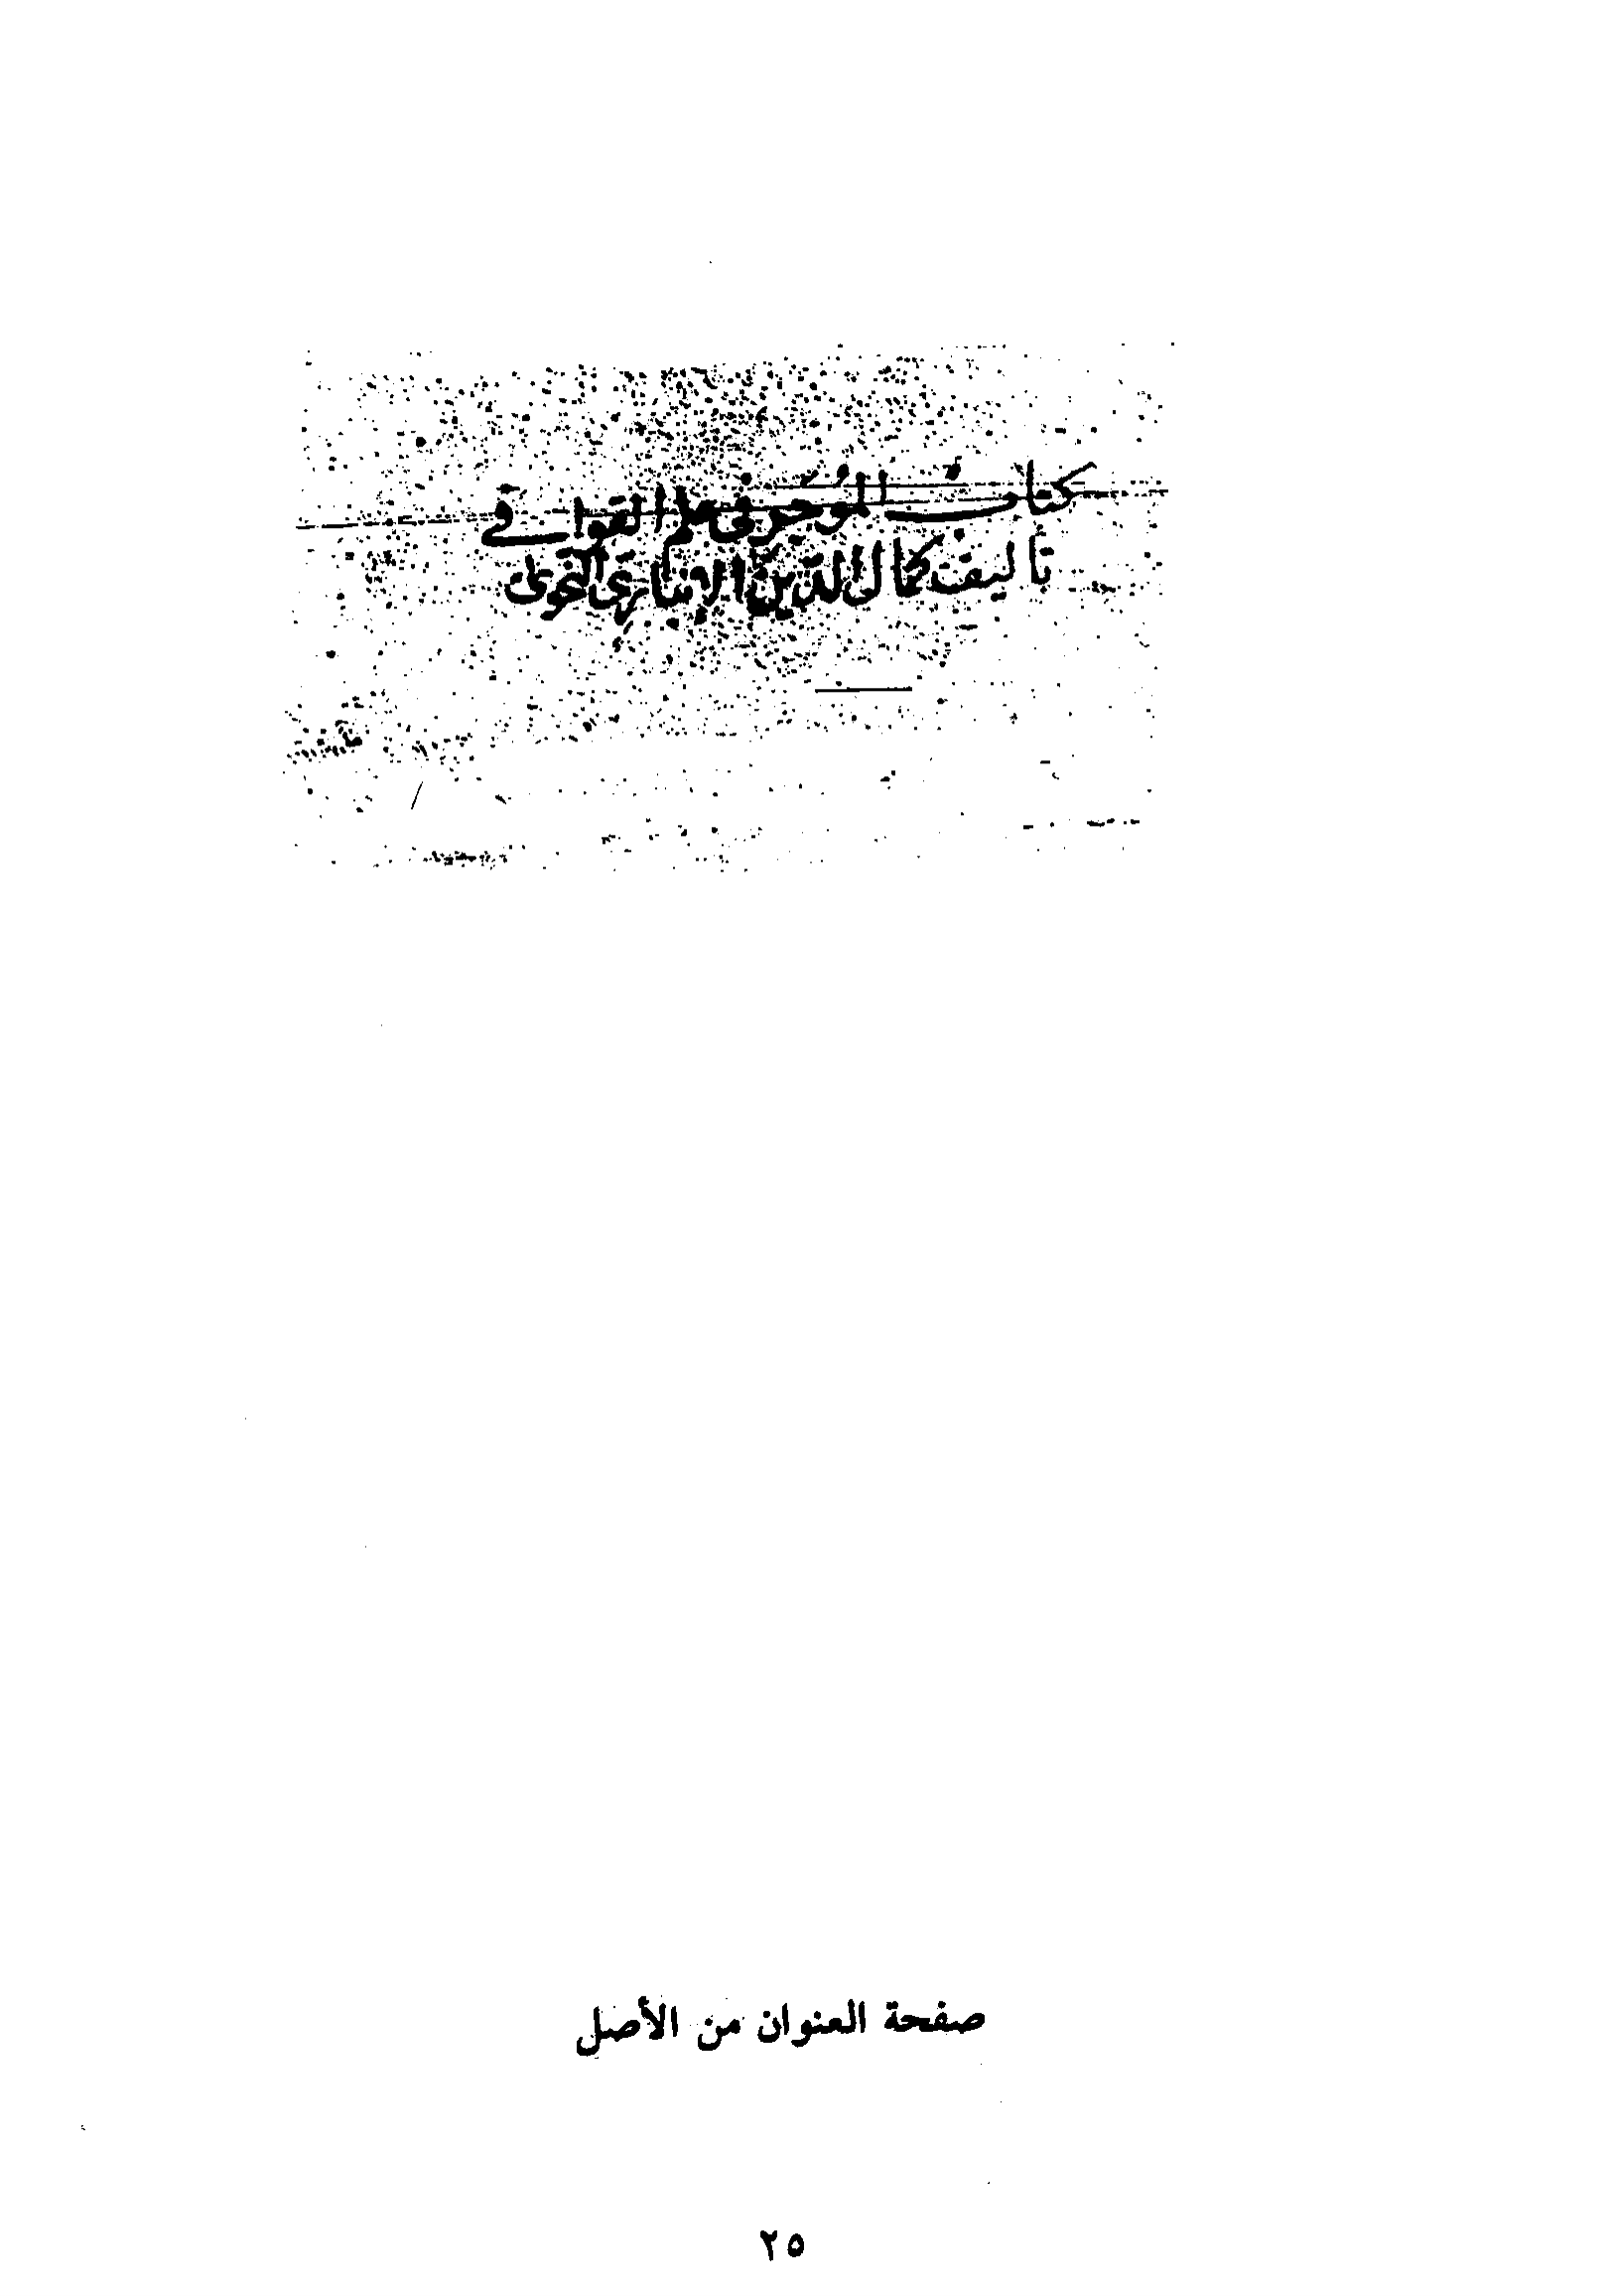 كتاب الموجز في علم القوافي
تأليف كمال الدين الانباري النحوي
صفحة العنوان من الأصل
٢٥